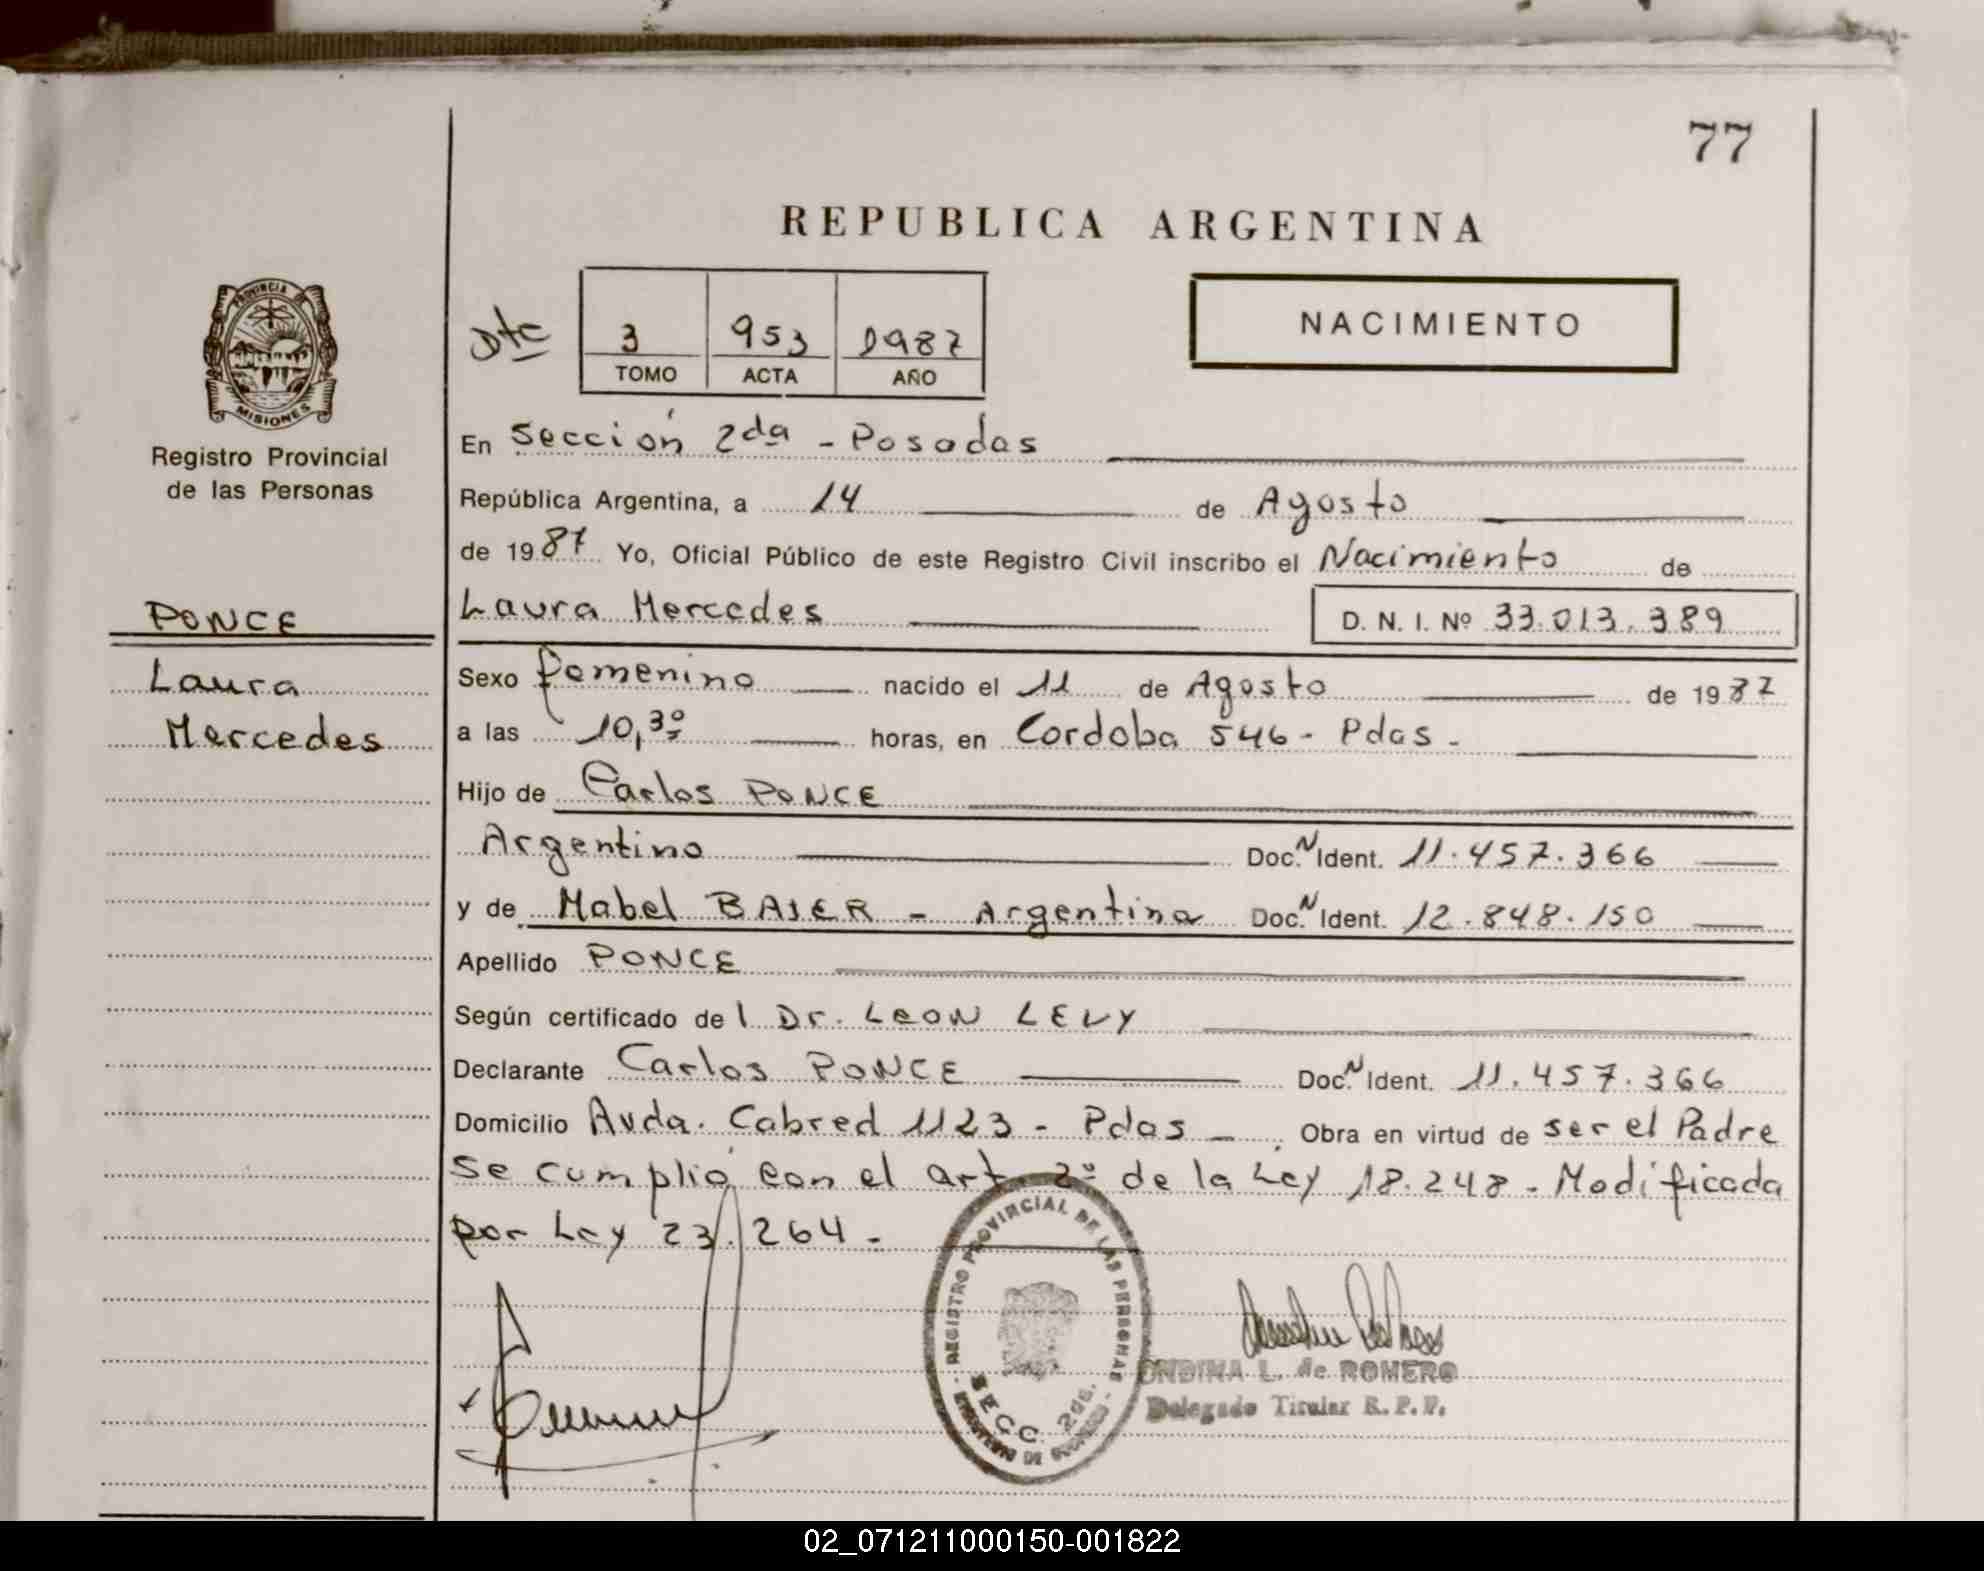 77
REPUBLICA ARGENTINA
PROVINCIA DE
MISIONES
Registro Provincial
de las Personas
Dtc
3 953 1987
TOMO ACTA AÑO
NACIMIENTO
En Sección 2da - Posadas
República Argentina, a 14 de Agosto
de 1987 Yo, Oficial Público de este Registro Civil inscribo el Nacimiento de
PONCE
Laura Mercedes D. N. I. Nº 33.013.389
Laura
Sexo femenino nacido el 11 de Agosto de 1987
Mercedes
a las 10,3º horas, en Cordoba 546 - Pdas -
Hijo de Carlos PONCE
Argentino Doc. N Ident. 11.457.366
y de Mabel BAIER - Argentina Doc. N Ident. 12.848.150
Apellido PONCE
Según certificado de l Dr. LEON LEVY
Declarante Carlos PONCE Doc. N Ident. 11.457.366
Domicilio Avda. Cabred 1123 - Pdas - Obra en virtud de ser el Padre
Se cumplió con el art. 2º de la Ley 18.248 - Modificada
por Ley 23.264 -
REGISTRO PROVINCIAL DE LAS PERSONAS
SECC. 2da.
MINISTERIO DE GOBIERNO
ONDINA L. de ROMERO
Delegado Titular R. P. P.
02_071211000150-001822